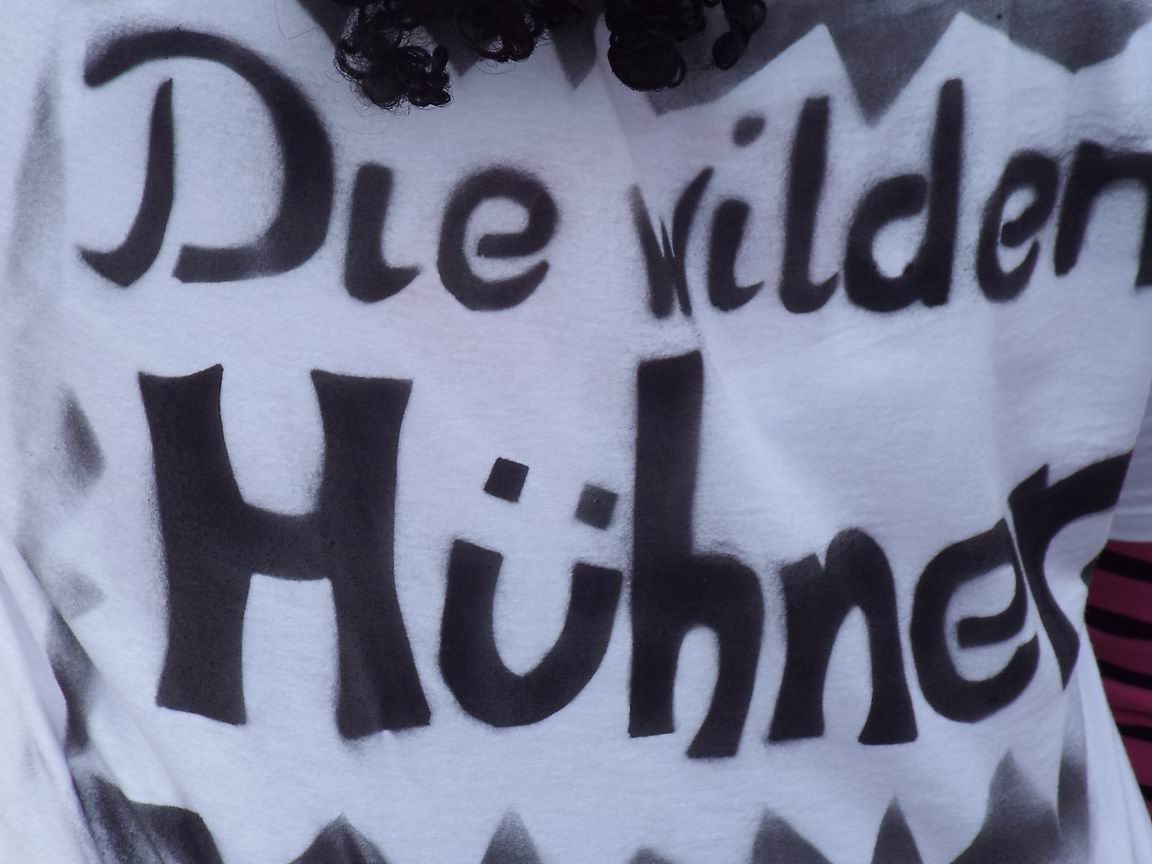 Die wilden
Hühner